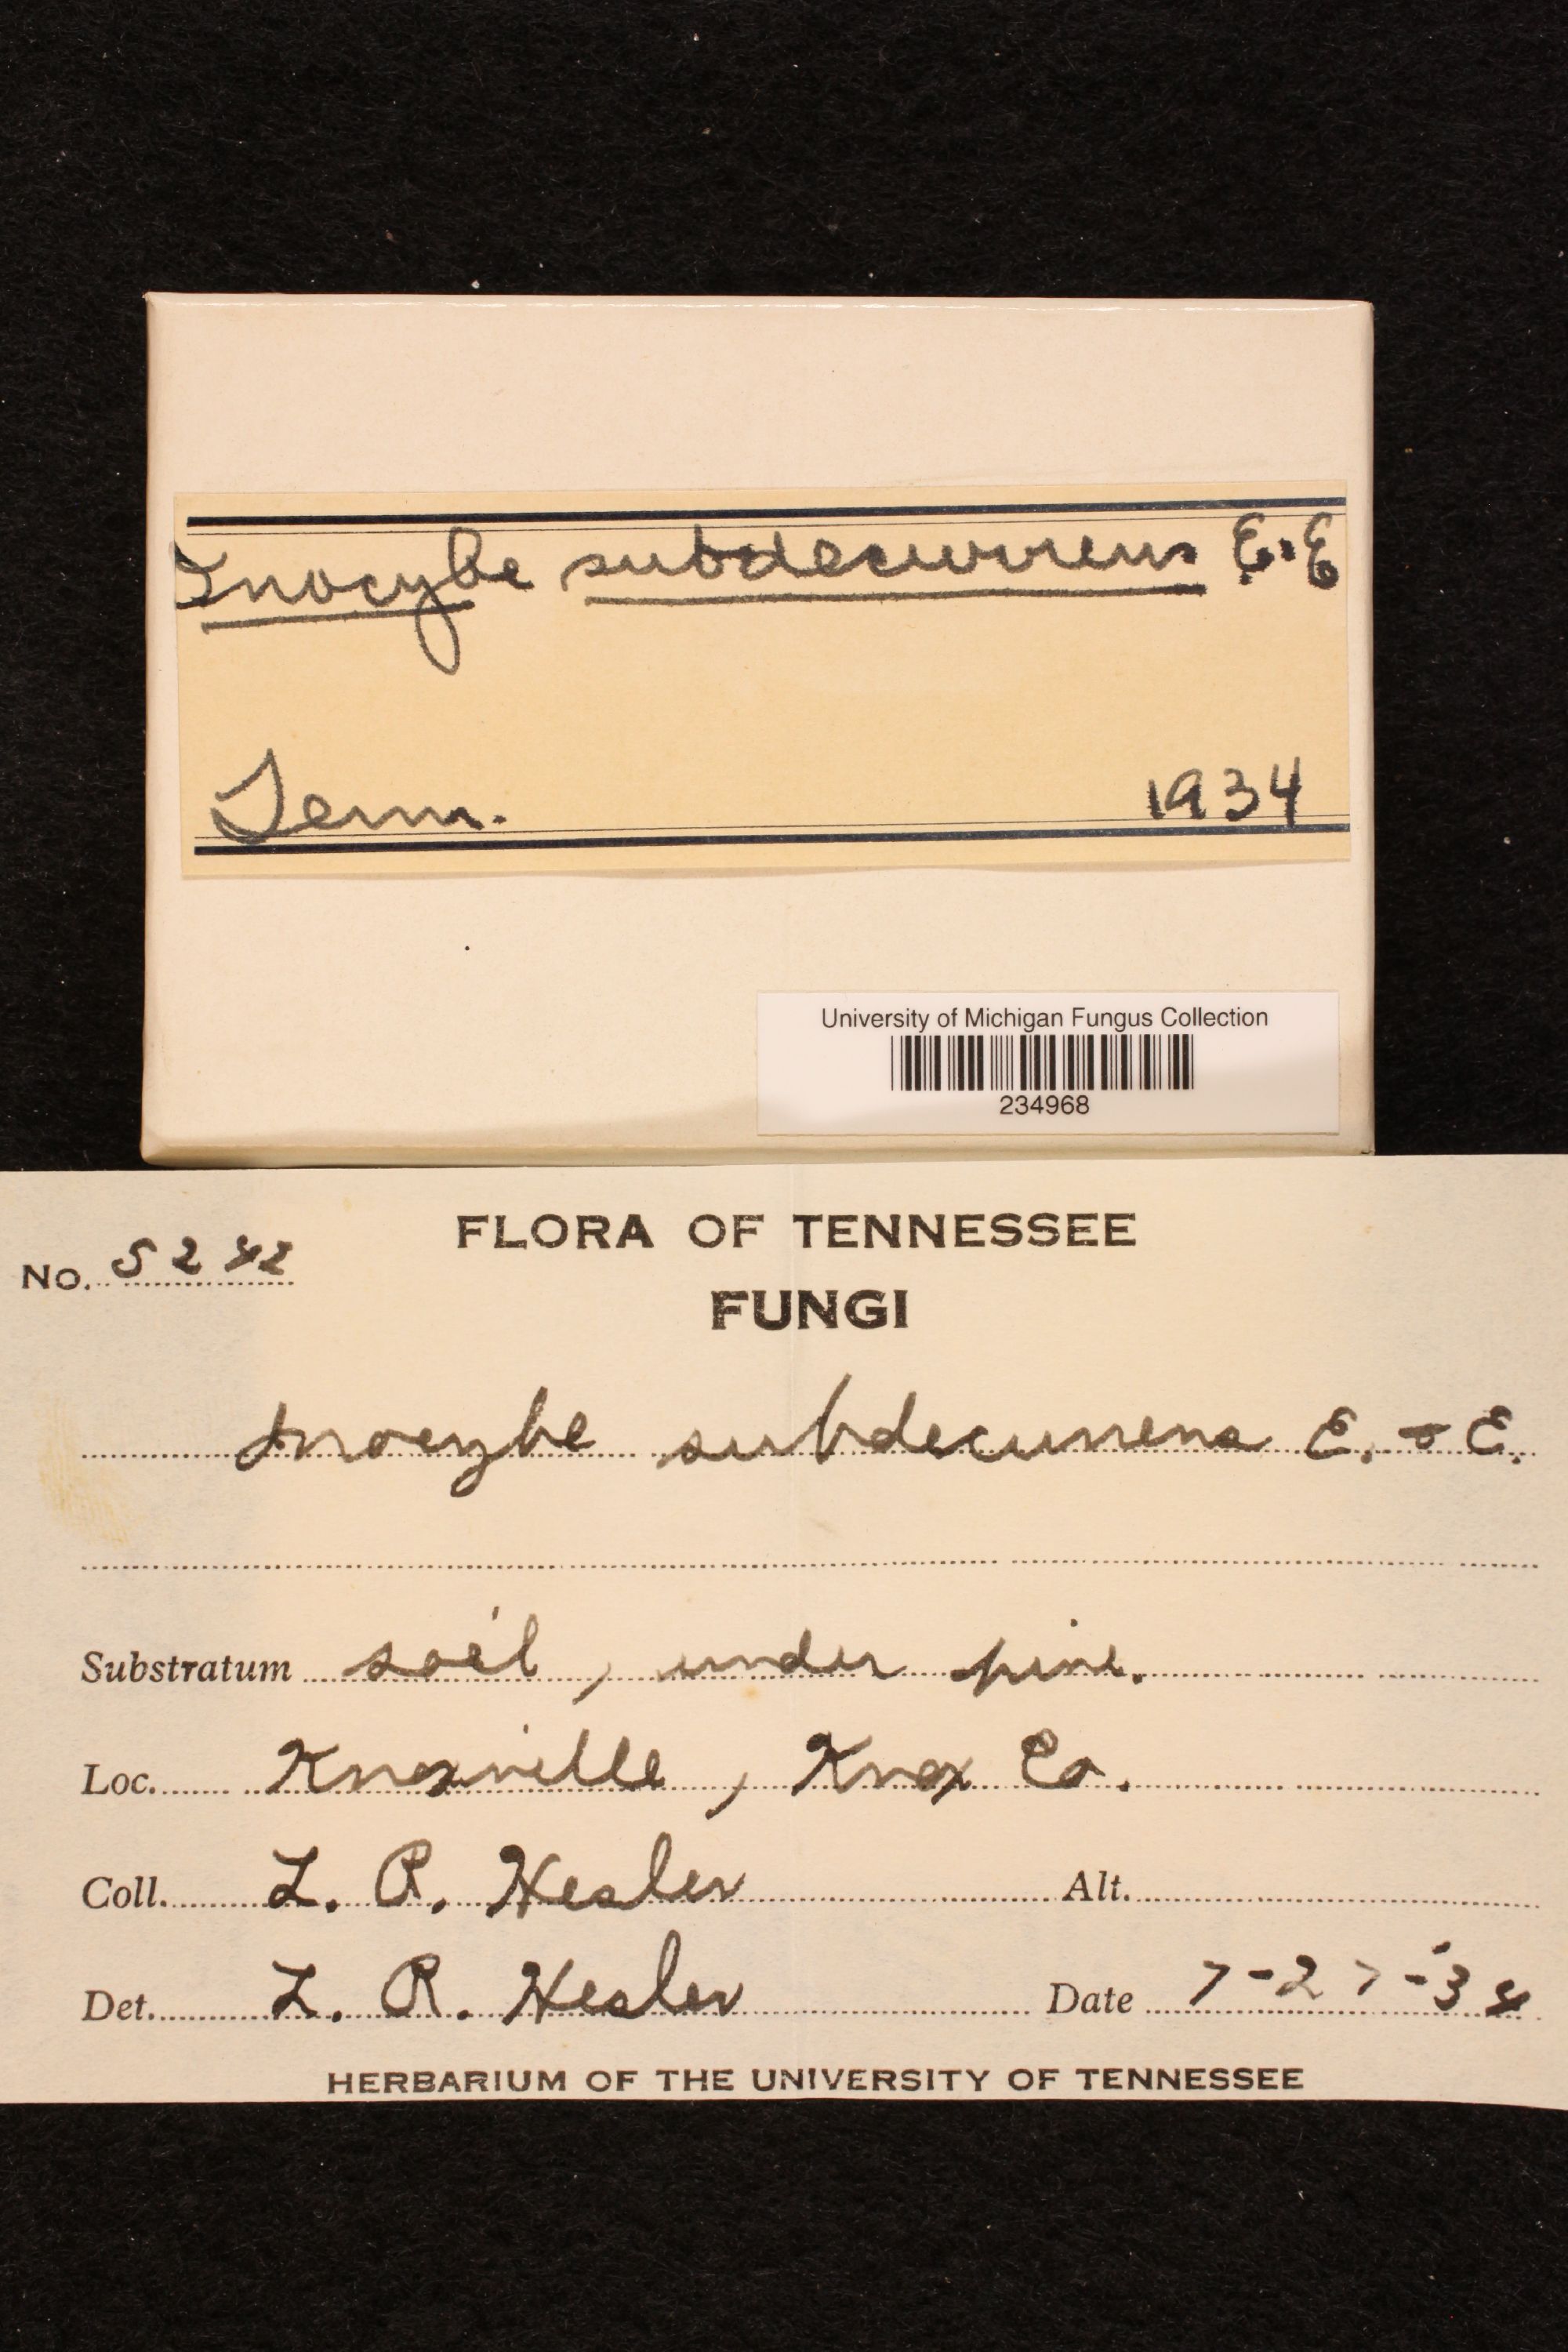 Inocybe subdecurrens E. & E
Tenn. 1934
University of Michigan Fungus Collection
234968
FLORA OF TENNESSEE
No. 5242
FUNGI
Inocybe subdecurrens E. & E.
Substratum soil, under pine.
Loc. Knoxville, Knox Co.
Coll. L. R. Hesler Alt.
Det. L. R. Hesler Date 7-27-34
HERBARIUM OF THE UNIVERSITY OF TENNESSEE